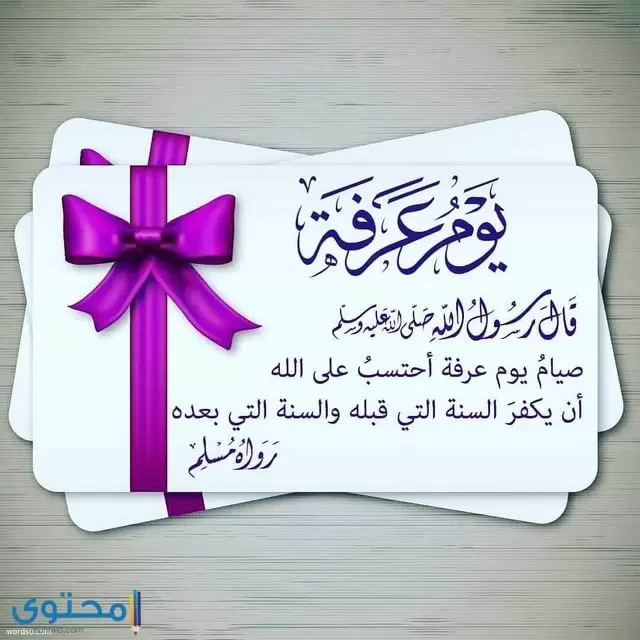 يَوْمُ عَرَفَة
قَالَ رَسُولُ اللّٰهِ صَلّى اللّٰه عَليْه وسَلّم
صيامُ يوم عرفة أحتسبُ على الله
أن يكفرَ السنة التي قبله والسنة التي بعده
رَوَاهُ مُسْلِم
محتوى